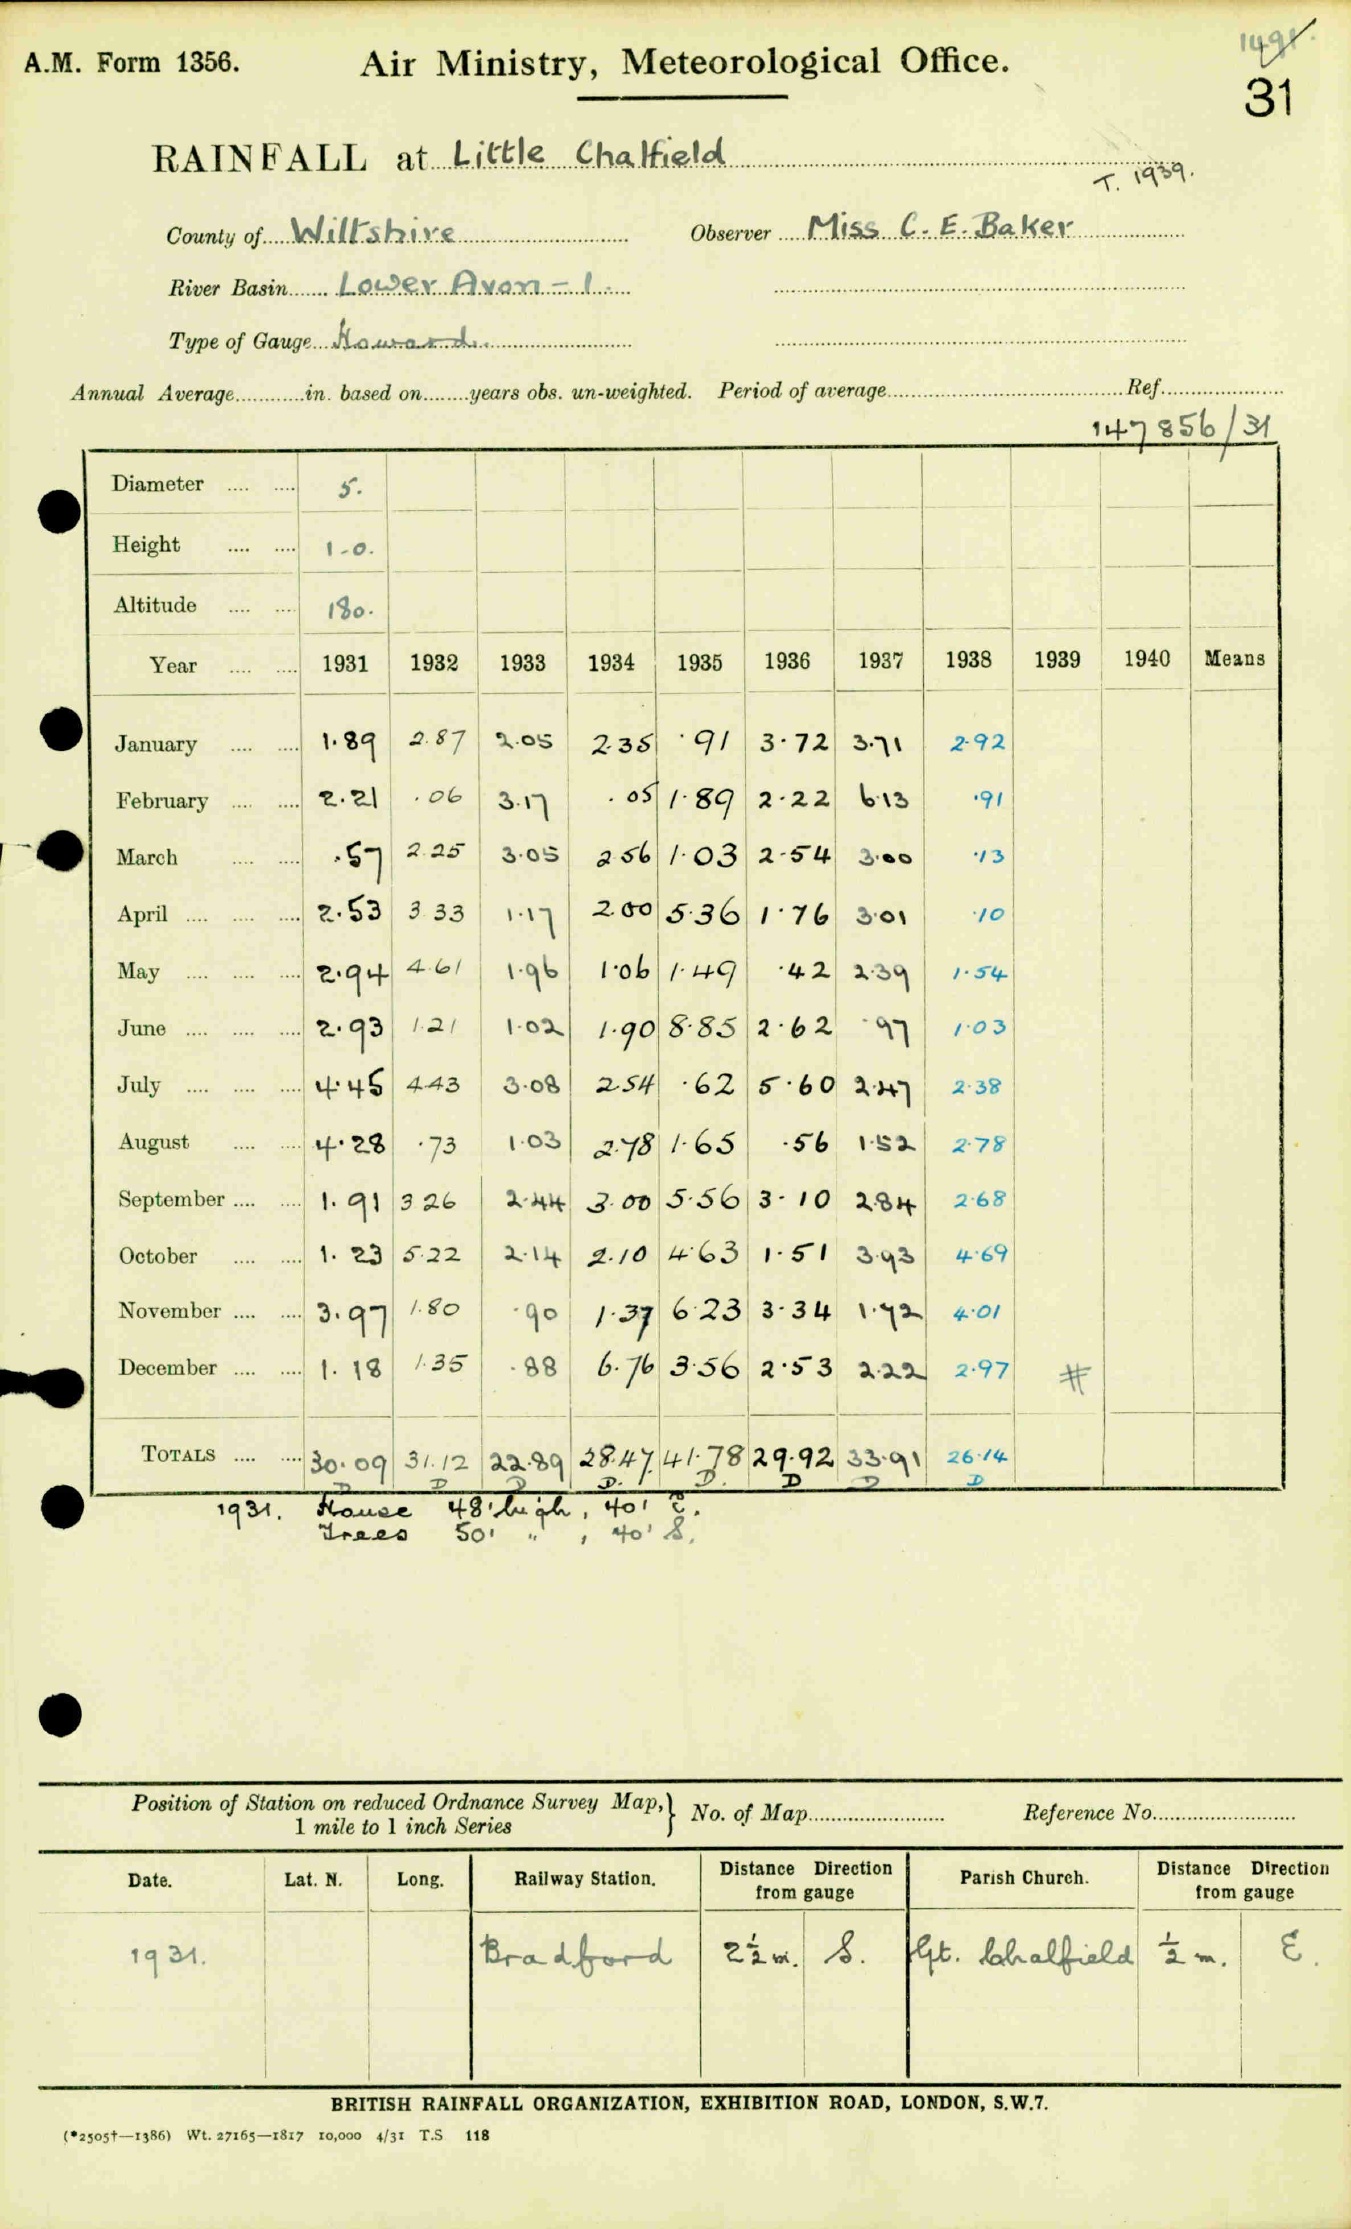 1491.
A.M. Form 1356. Air Ministry, Meteorological Office.
31
RAINFALL at Little Chalfield
T. 1939.
County of Wiltshire Observer Miss C. E. Baker
River Basin Lower Avon - 1.
Type of Gauge Howard.
Annual Average in. based on years obs. un-weighted. Period of average Ref.
147856/31
Diameter 5.
Height 1-0.
Altitude 180.
Year 1931 1932 1933 1934 1935 1936 1937 1938 1939 1940 Means
January 1.89 2.87 2.05 2.35 .91 3.72 3.71 2.92
February 2.21 .06 3.17 .05 1.89 2.22 6.13 .91
March .57 2.25 3.05 2.56 1.03 2.54 3.00 .13
April 2.53 3.33 1.17 2.00 5.36 1.76 3.01 .10
May 2.94 4.61 1.96 1.06 1.49 .42 2.39 1.54
June 2.93 1.21 1.02 1.90 8.85 2.62 .97 1.03
July 4.45 4.43 3.08 2.54 .62 5.60 2.47 2.38
August 4.28 .73 1.03 2.78 1.65 .56 1.52 2.78
September 1.91 3.26 2.44 3.00 5.56 3.10 2.84 2.68
October 1.23 5.22 2.14 2.10 4.63 1.51 3.93 4.69
November 3.97 1.80 .90 1.37 6.23 3.34 1.72 4.01
December 1.18 1.35 .88 6.76 3.56 2.53 2.22 2.97 #
TOTALS 30.09 31.12 22.89 28.47 41.78 29.92 33.91 26.14
D D D D. D. D D D
1931. House 48' high, 40' E.
Trees 50' " , 40' S.
Position of Station on reduced Ordnance Survey Map, } No. of Map Reference No.
1 mile to 1 inch Series
Date. Lat. N. Long. Railway Station. Distance Direction from gauge Parish Church. Distance Direction from gauge
1931. Bradford 2½ m. S. Gt. Chalfield ½ m. E.
BRITISH RAINFALL ORGANIZATION, EXHIBITION ROAD, LONDON, S.W.7.
(*2505†—1386) Wt. 27165—1817 10,000 4/31 T.S 118